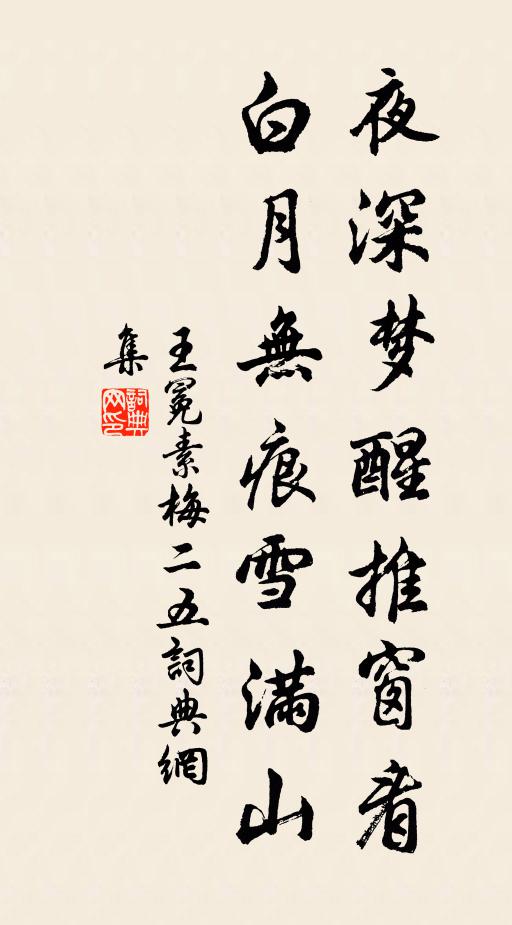 夜深梦醒推窗看
白月無痕雪满山
王冕素梅二五詞典網
集
詞典网印